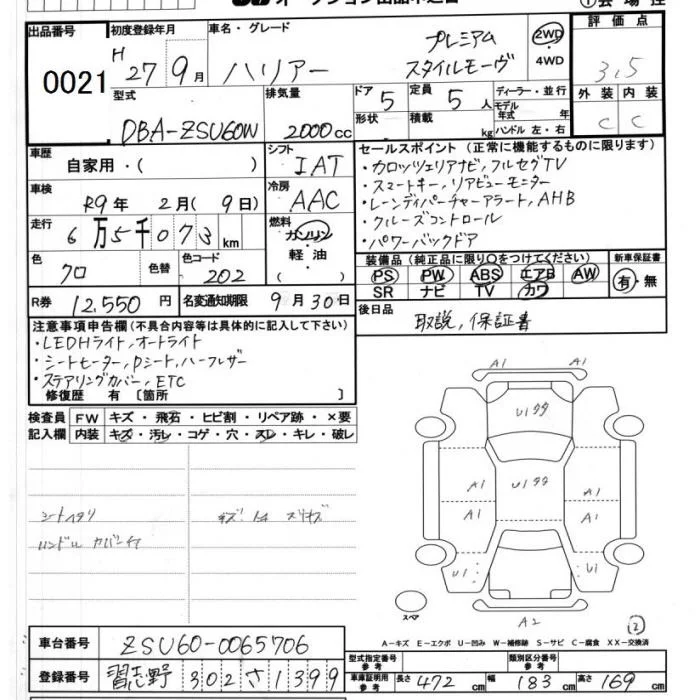 出品番号 初度登録年月 車名・グレード
0021
H 27年 9月 ハリアー プレミアム スタイルモーヴ
2WD ・ 4WD
評価点
3.5
外装 内装
C C
型式 排気量 ドア 定員 ディーラー・並行
DBA-ZSU60W 2000cc 5 5人
形状 積載 kg モデル年式 年
ハンドル 左・右
車歴 自家用・( ) シフト IAT
車検 R9年 2月( 9日) 冷房 AAC
走行 6万5千073km 燃料 ガソリン・軽油・( )
色 クロ 色替 色コード 202
R券 12,550円 名変通知期限 9月30日
セールスポイント (正常に機能するものに限ります)
・カロッツェリアナビ,フルセグTV
・スマートキー,リアビューモニター
・レーンディパーチャーアラート,AHB
・クルーズコントロール
・パワーバックドア
装備品 (純正品に限り〇をつけてください) 新車保証書
PS PW ABS エアB AW 有・無
SR ナビ TV カワ
後日品 取説,保証書
注意事項申告欄(不具合内容等は具体的に記入して下さい)
・LEDHライト,オートライト
・シートヒーター,Pシート,ハーフレザー
・ステアリングカバー,ETC
修復歴 有 〔箇所 〕
検査員 FW キズ・飛石・ヒビ割・リペア跡・×要
記入欄 内装 キズ・汚レ・コゲ・穴・スレ・キレ・破レ
シートヘタリ
ハンドル カバー付
A1 A1
U1 タタ
U1 タタ
A1 A1
A1 A1
U1 U1
スペア A2
A-キズ E-エクボ U-凹み W-補修跡 S-サビ C-腐食 XX-交換済
車台番号 ZSU60-0065706
登録番号 習志野 302 さ 1399
型式指定番号 参考 類別区分番号 参考
車庫証明用 参考 長さ 472cm 幅 183cm 高さ 169cm